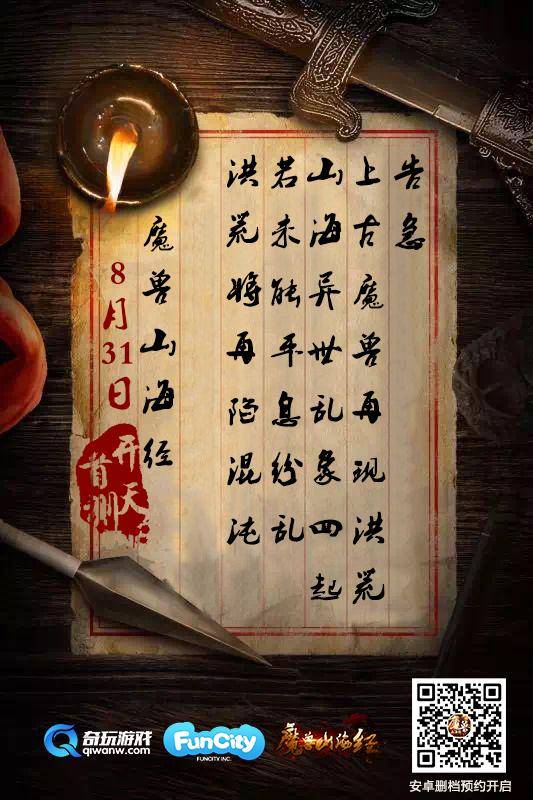 告急
上古魔兽再现洪荒
山海异世乱象四起
若未能平息纷乱
洪荒将再陷混沌
魔兽山海经
8月31日
开天
首测
奇玩游戏
qiwanw.com
FunCity
FUNCITY INC.
魔兽山海经
安卓删档预约开启